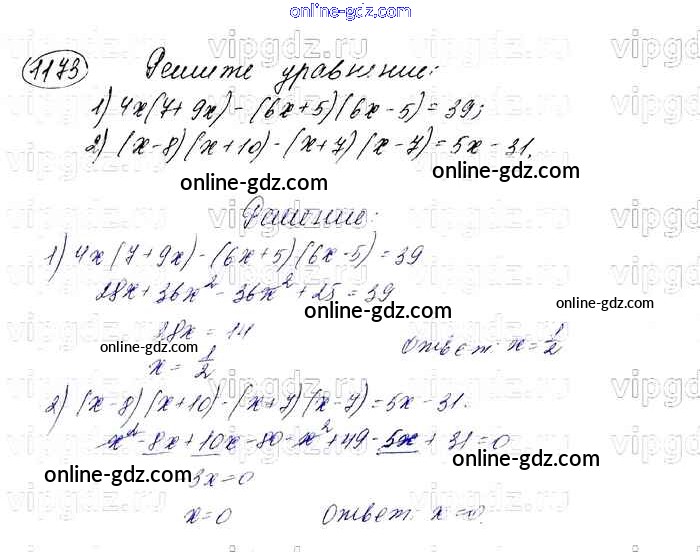 online-gdz.com
1173 Решите уравнение:
1) 4x(7+9x)-(6x+5)(6x-5)=39;
2) (x-8)(x+10)-(x+7)(x-7)=5x-31.
online-gdz.com online-gdz.com
Решение:
1) 4x(7+9x)-(6x+5)(6x-5)=39
28x+36x²-36x²+25=39
online-gdz.com online-gdz.com
28x=14
online-gdz.com
x=1/2 Ответ: x=1/2
2) (x-8)(x+10)-(x+7)(x-7)=5x-31.
x²-8x+10x-80-x²+49-5x+31=0
online-gdz.com online-gdz.com
3x=0
x=0 Ответ: x=0.
online-gdz.com